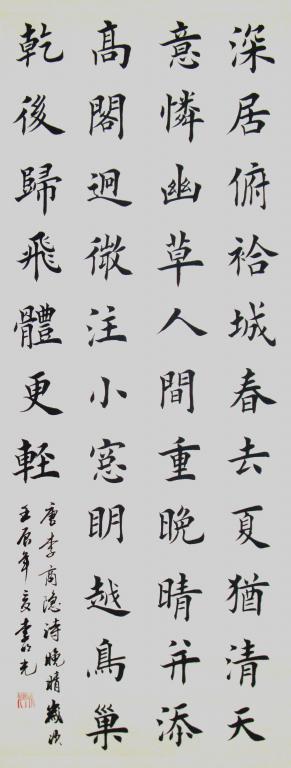 深居俯袷城春去夏猶清天
意憐幽草人間重晚晴并添
髙閣迥微注小窓眀越鳥巢
乾後歸飛體更輕
唐李商隐诗晚晴歲次
壬辰年夏李光